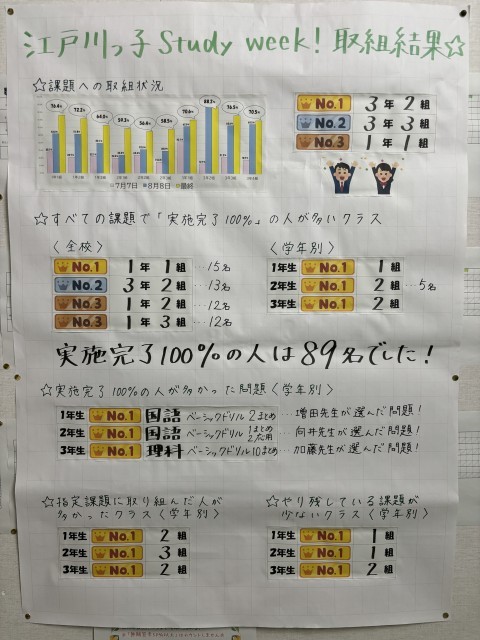 江戸川っ子 Study week! 取組結果☆
☆課題への取組状況
76.4% 72.2% 64.0% 59.3% 56.4% 58.5% 70.6% 88.3% 76.5% 70.5%
7月7日 8月8日 最終
No.1 3年2組
No.2 3年3組
No.3 1年1組
☆すべての課題で「実施完了100%」の人が多いクラス
〈全校〉
No.1 1年1組 …15名
No.2 3年2組 …13名
No.3 1年2組 …12名
No.3 1年3組 …12名
〈学年別〉
1年生 No.1 1組
2年生 No.1 2組 …5名
3年生 No.1 2組
実施完了100%の人は89名でした!
☆実施完了100%の人が多かった問題〈学年別〉
1年生 No.1 国語 ベーシックドリル2まとめ …増田先生が選んだ問題!
2年生 No.1 国語 ベーシックドリル …向井先生が選んだ問題!
3年生 No.1 理科 ベーシックドリル10まとめ …加藤先生が選んだ問題!
☆指定課題に取り組んだ人が
多かったクラス〈学年別〉
1年生 No.1 2組
2年生 No.1 3組
3年生 No.1 2組
☆やり残している課題が
少ないクラス〈学年別〉
1年生 No.1 1組
2年生 No.1 1組
3年生 No.1 2組